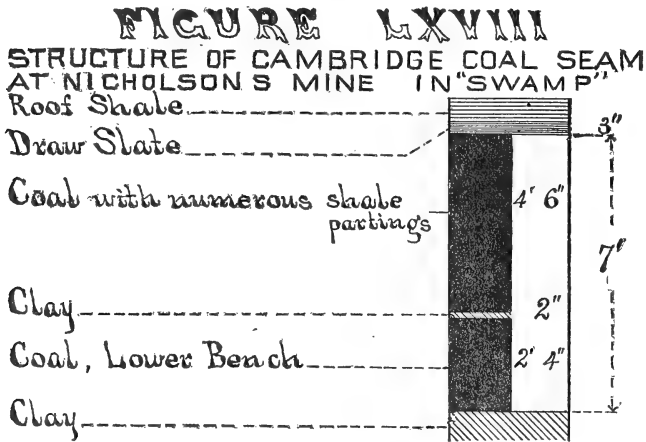 FIGURE LXVIII
STRUCTURE OF CAMBRIDGE COAL SEAM
AT NICHOLSONS MINE IN "SWAMP"
Roof Shale
3"
Draw Slate
Coal with numerous shale
partings
4' 6"
7'
Clay
2"
Coal, Lower Bench
2' 4"
Clay